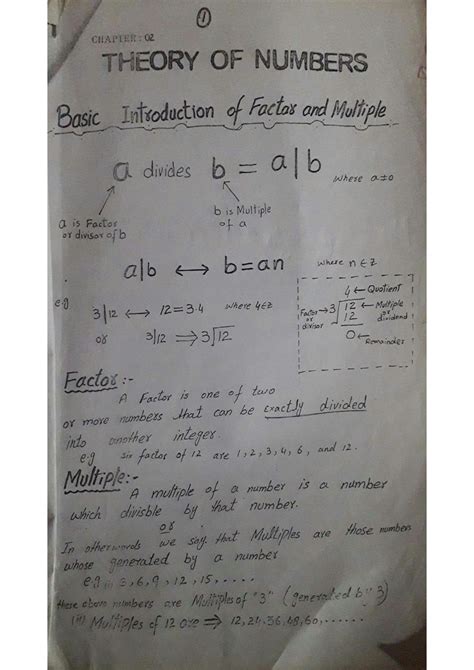 ①
CHAPTER: 02
THEORY OF NUMBERS
Basic Introduction of Factor and Multiple
a divides b = a|b where a≠0
a is Factor
or divisor of b
b is Multiple
of a
a|b ↔ b=an where n∈z
e.g
3|12 ↔ 12=3.4 where 4∈z
or 3|12 ⟹ 3√12
4 ← Quotient
Factor or divisor → 3 12 ← Multiple or dividend
12
0 ← Remainder
Factor :-
A Factor is one of two
or more numbers that can be exactly divided
into another integer.
e.g six factor of 12 are 1, 2, 3, 4, 6, and 12.
Multiple:-
A multiple of a number is a number
which divisble by that number.
or
In otherwords we say that Multiples are those numbers
whose generated by a number
e.g 3, 6, 9, 12, 15, .....
these above numbers are Multiples of "3" (generated by 3)
(ii) Multiples of 12 are ⟹ 12, 24, 36, 48, 60, ......